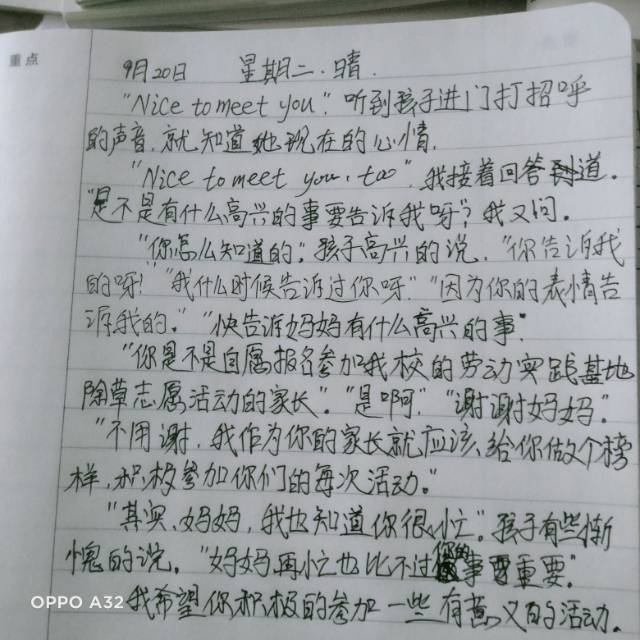 重点
9月20日 星期二.晴.
"Nice to meet you". 听到孩子进门打招呼
的声音,就知道她现在的心情.
"Nice to meet you, too". 我接着回答道.
"是不是有什么高兴的事要告诉我呀?"我又问.
"你怎么知道的."孩子高兴的说,"你告诉我
的呀!""我什么时候告诉过你呀.""因为你的表情告
诉我的.""快告诉妈妈有什么高兴的事."
"你是不是自愿报名参加我校的劳动实践基地
除草志愿活动的家长.""是啊.""谢谢妈妈."
"不用谢,我作为你的家长就应该,给你做个榜
样,积极参加你们的每次活动."
"其实、妈妈,我也知道你很忙".孩子有些惭
愧的说,"妈妈再忙也比不过你的事重要."
我希望你积极的参加一些有意义的活动.
OPPO A32